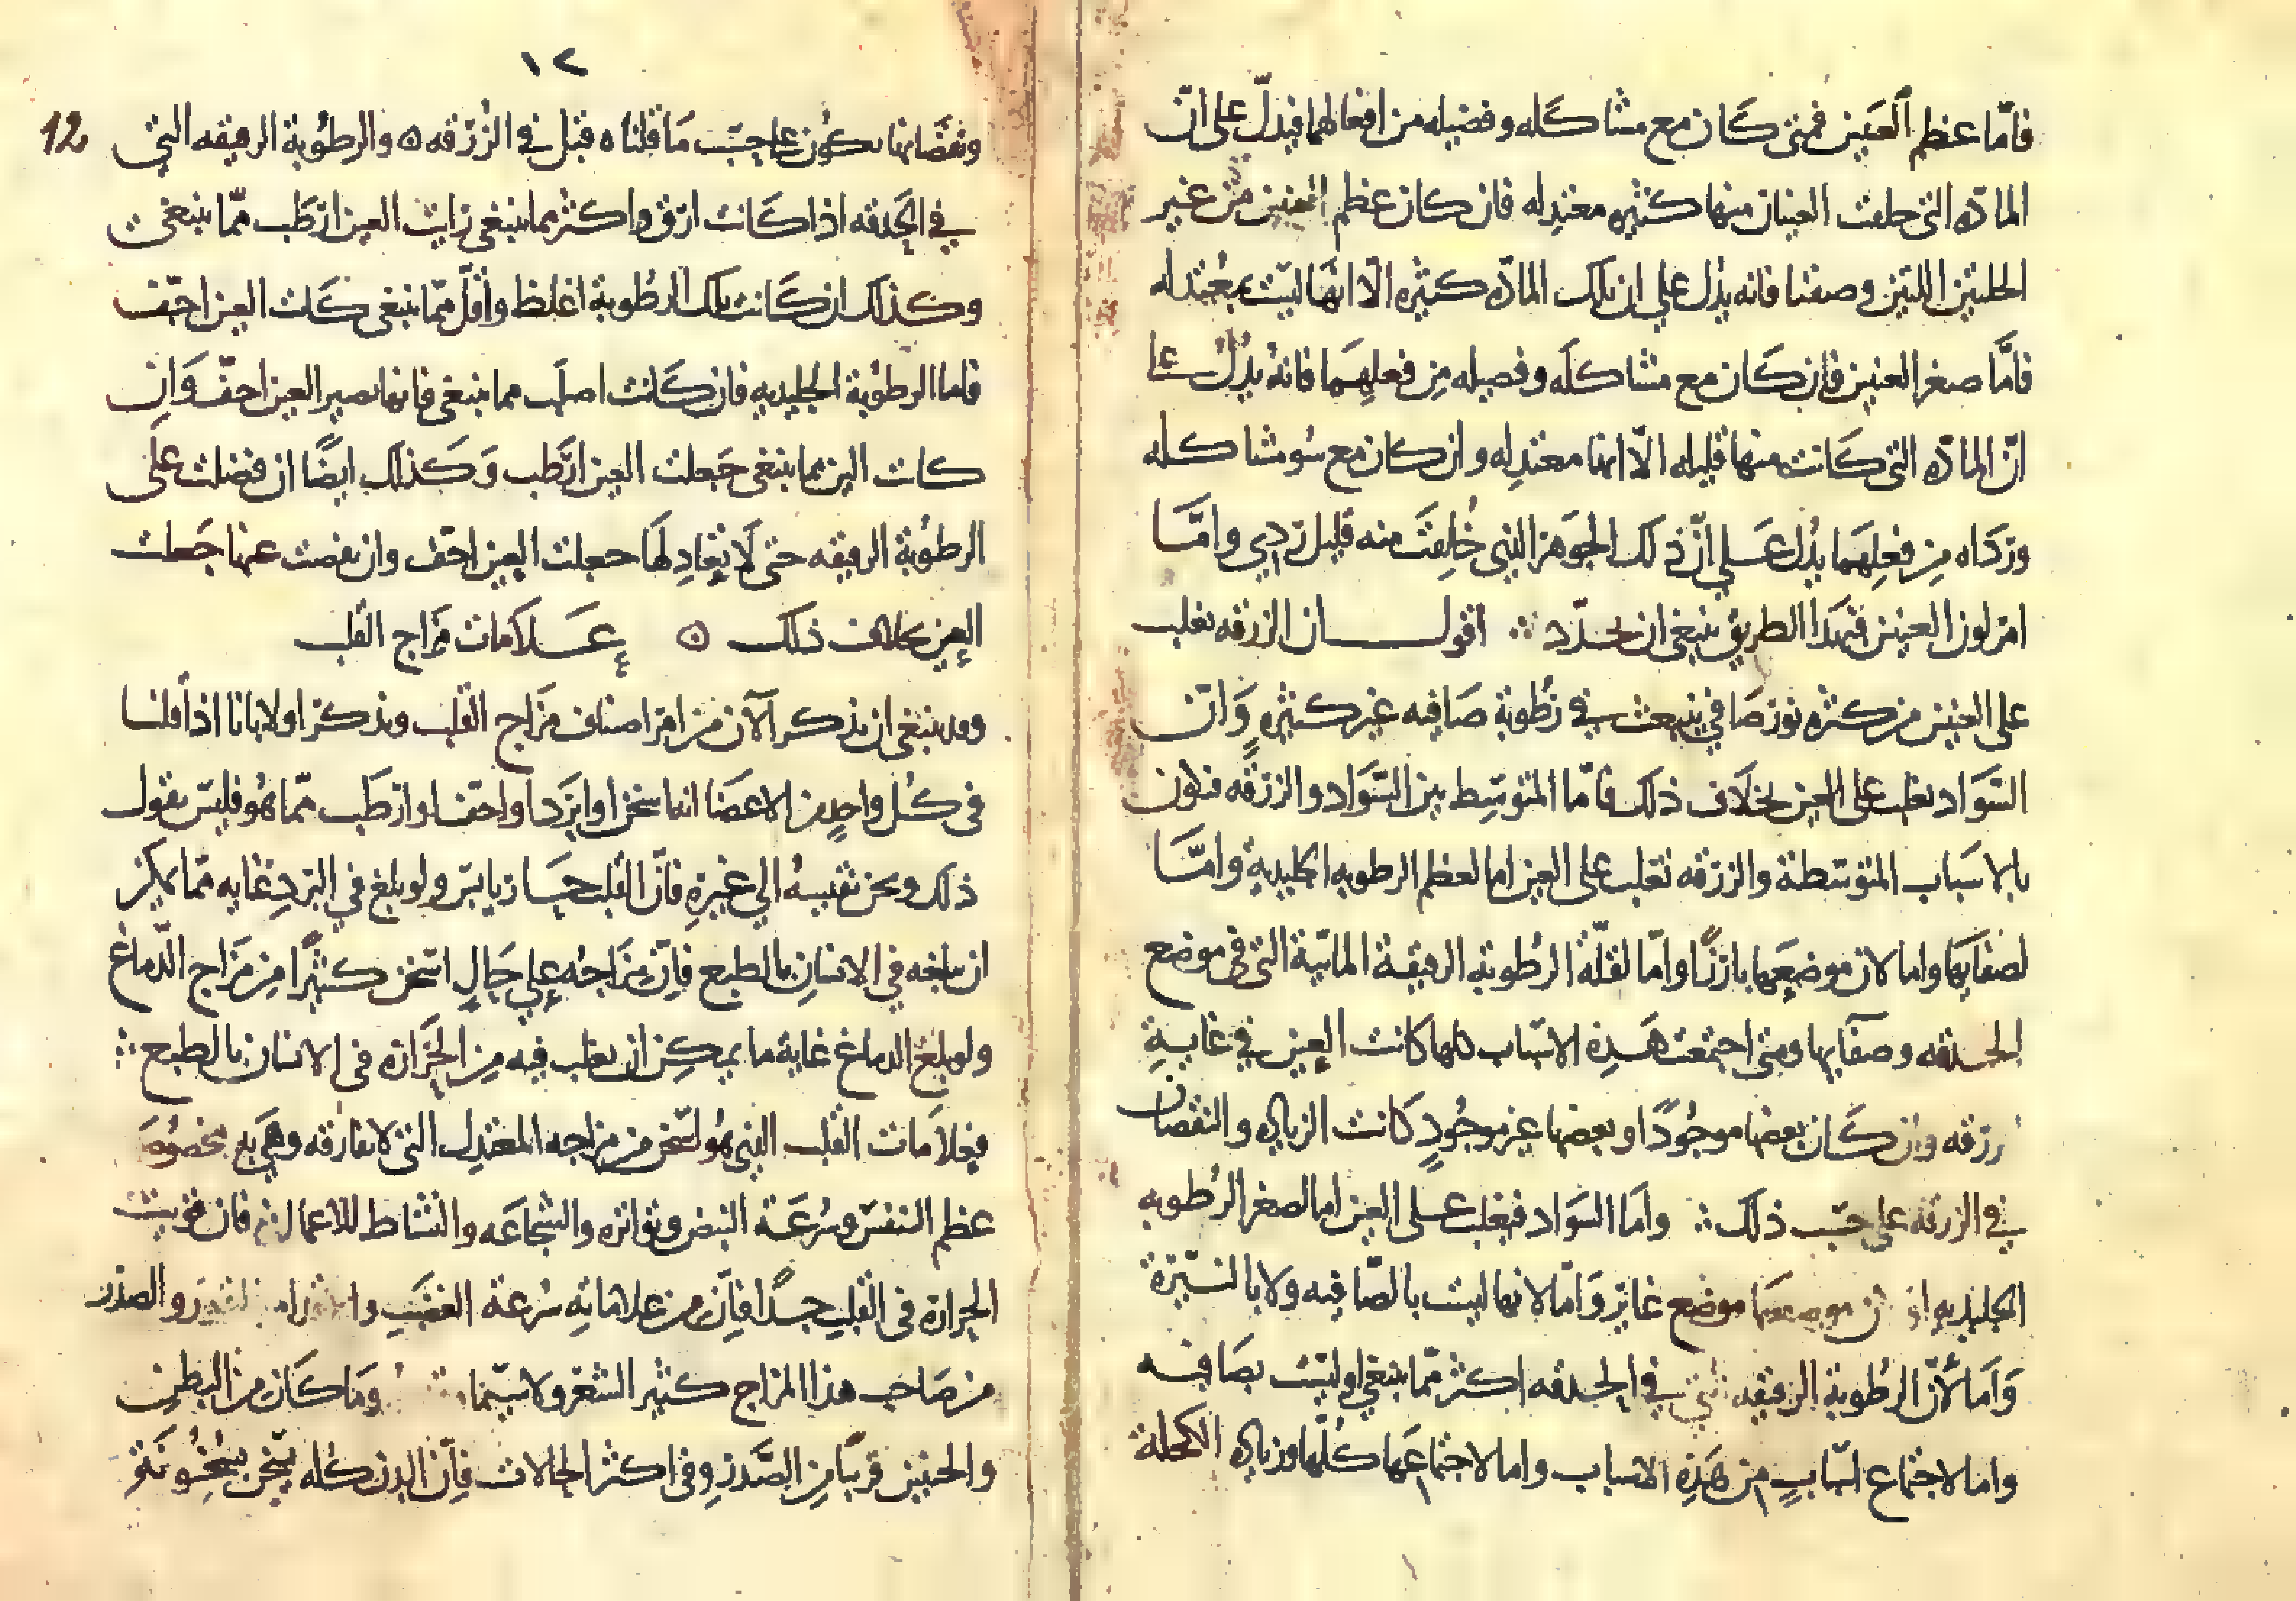 فامّا عظم العينين فمتى كان مع مشاكله وفضيله من افعالهما فيدلّ على انّ
المادّه التى خلقت العينان منها كثيره معتدله فان كان عظم العينين من غير
الخلتين اللتين وصفنا فانه يدل على ان تلك المادّه كثيره الّا انها ليست بمعتدله
فامّا صغر العينين فان كان مع مشاكله وفضيله من فعلهما فانه يدل على
انّ المادّه التى كانت منها قليله الّا انها معتدله وان كان مع سو مشاكله
ورداه من فعلهما يدل على انّ ذلك الجوهر الذي خلقت منه قليل ردي وامّا
امر لون العينين فبهذا الطريق ينبغى ان يحدّد ∴ اقول ان الزرقه تغلب
على العينين من كثره نور صافي ينبعث في رطوبة صافيه غير كثيره وان
السواد يغلب على العين بخلاف ذلك فامّا المتوسط بين السّواد والزرقه فتكون
بالاسباب المتوسّطة والزرقه تغلب على العين اما لعظم الرطوبه الجليدية وامّا
لصفايها واما لان موضعها بارزًا وامّا لقلّة الرطوبه الرقيقة المائيّة التى فى موضع
الحدقه وصفايها ومتى اجتمعت هذه الاسباب كلها كانت العين في غاية
زرقه وان كان بعضها موجودًا وبعضها غير موجودٍ كانت الزياده والنقصان
في الزرقه على حسب ذلك ∴ واما السواد فيغلب على العين اما لصغر الرطوبه
الجليديه او موضعها موضع غاير وامّا لانها ليست بالصّافيه ولا بالنيّرة
واما لأنّ الرطوبة الرقيقه التي في الحدقه اكثر ممّا ينبغي او ليست بصافيه
واما لاجتماع اسّباب من هذه الاسباب واما لاجتماعها كلّها وزياده الكحلة
١٢
12
ونقصانها يكون على حسب ما قلناه قبل في الزرقه ه والرطوبة الرقيقه التي
في الحدقه اذا كانت ارق واكثر مما ينبغي رايت العين ارطب ممّا ينبغي
وكذلك ان كانت تلك الرطوبة اغلظ واقلّ ممّا ينبغى كانت العين اجفّ
فاما الرطوبة الجليديه فان كانت اصلب مما ينبغى فانها تصير العين اجفّ وان
كانت الين مما ينبغى جعلت العين ارطب وكذلك ايضًا ان فضلت على
الرطوبة الرقيقه حتى لا تعادلها جعلت العين اجف وان نقصت عنها جعلت
العين بخلاف ذلك ه علامات مزاج القلب
وقد ينبغى ان نذكر الآن من امر اصناف مزاج القلب ونذكر اولا بانا اذا قلنا
فى كل واحد من الاعضا انه اسخن او ابرد او اجف او ارطب ممّا هو فليس نقول
ذلك ونحن نقيسه الي غيره فانّ القلب حار يابس ولو بلغ في البرد غايه ممّا يمكن
ان يبلغه في الانسان بالطبع فانّ مزاجه على حالٍ اسخن كثيرًا من مزاج الدّماغ
ولو بلغ الدماغ غاية ما يمكن ان يغلب فيه من الحرارة فى الانسان بالطبع ∴
فعلامات القلب الذي هو اسخن من مزاجه المعتدل التى لا تفارقه وهى به مخصوصه
عظم النفس وسرعة النبض وتواتره والشجاعه والنشاط للاعمال ∴ فان قويت
الحرارة فى القلب جدًا فانّ من علاماته سرعة الغضب والصدر
من صاحب هذا المزاج كثير الشعر ولا سيّما وما كان من البطن
والجنبين قريبًا من الصّدر وفى اكثر الحالات فانّ البدن كله يسخن بسخونة